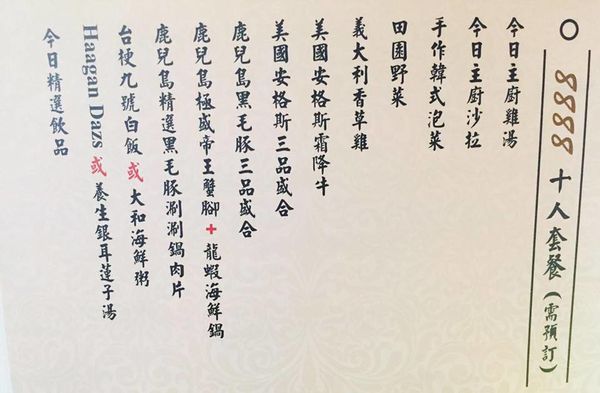 〇 8888 十人套餐(需預訂)
今日主廚雞湯
今日主廚沙拉
手作韓式泡菜
田園野菜
義大利香草雞
美國安格斯霜降牛
美國安格斯三品盛合
鹿兒島黑毛豚三品盛合
鹿兒島極盛帝王蟹腳+龍蝦海鮮鍋
鹿兒島精選黑毛豚涮涮鍋肉片
台梗九號白飯或大和海鮮粥
Haagan Dazs 或養生銀耳蓮子湯
今日精選飲品